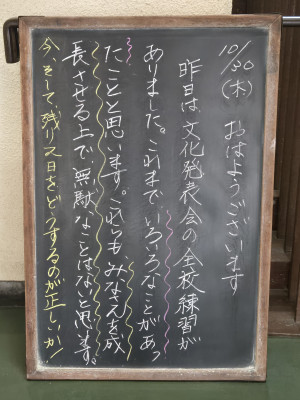 10/30(木) おはようございます
昨日は文化発表会の全校練習が
ありました。これまでいろいろなことがあっ
たことと思います。これらも、みなさんを成
長させる上で、無駄なことはないと思います。
今、そして、残り2日をどうするのが正しいか!